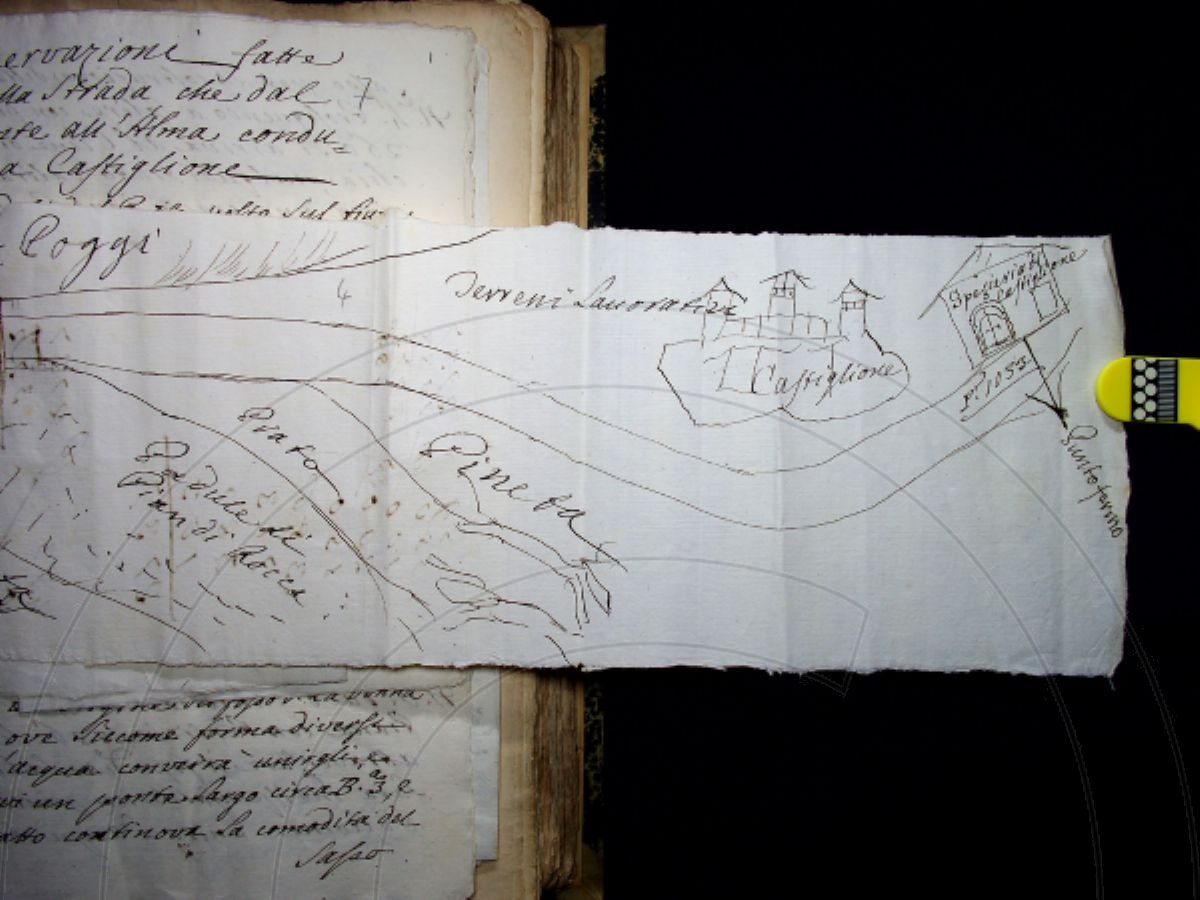 ervazioni fatte
lla Strada che dal 7
nte all'Alma condu=
a Castiglione
volto sul fiu
Poggi
4
Terreni Lavorativi
Castiglione
Spezieria di
Castiglione
Punto fermo
Prato
Padule di
Pian di Rocca
Pineta
ove siccome forma diversi
acqua converrà unirgli, e
vi un ponte largo circa B.a 3, e
atto continova la comodità del
Sasso